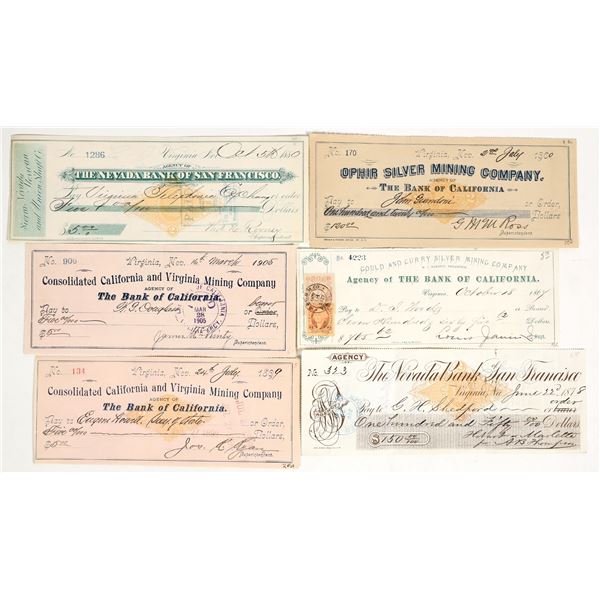 No. 1286 Virginia Nev. Oct 5th 1880
AGENCY OF
THE NEVADA BANK OF SAN FRANCISCO
Pay Virginia Telephone Exchange or order
Five & no/100 Dollars
$5.00
Sierra Nevada
Mexican
and Union Shaft Co.
No. 170 Virginia, Nev. 2nd July 1900
OPHIR SILVER MINING COMPANY.
AGENCY OF
THE BANK OF CALIFORNIA
Pay to John or Order,
One hundred and twenty Dollars
$120.00 Ross
Superintendent.
No. 900 Virginia, Nev. 16th March 1905
Consolidated California and Virginia Mining Company
AGENCY OF
The Bank of California.
Pay to or Order,
Five Dollars,
$5.00 James
Superintendent.
MAR
28
1905
No. 4223
GOULD AND CURRY SILVER MINING COMPANY
Agency of THE BANK OF CALIFORNIA.
Virginia, October 15 1867
Pay to or Bearer
Dollars
Louis Supt.
No. 134 Virginia, Nev. 24th July 1899
Consolidated California and Virginia Mining Company
AGENCY OF
The Bank of California.
Pay to Eugene Howell Secy of State or Order,
Five Dollars,
$5.00 Jos. R. Ryan
Superintendent.
AGENCY
No. 323 The Nevada Bank of San Francisco
Virginia, Nev. June 22d 1878
Pay to G. H. Shedford or order
One Hundred and Fifty 00/100 Dollars
$150.00